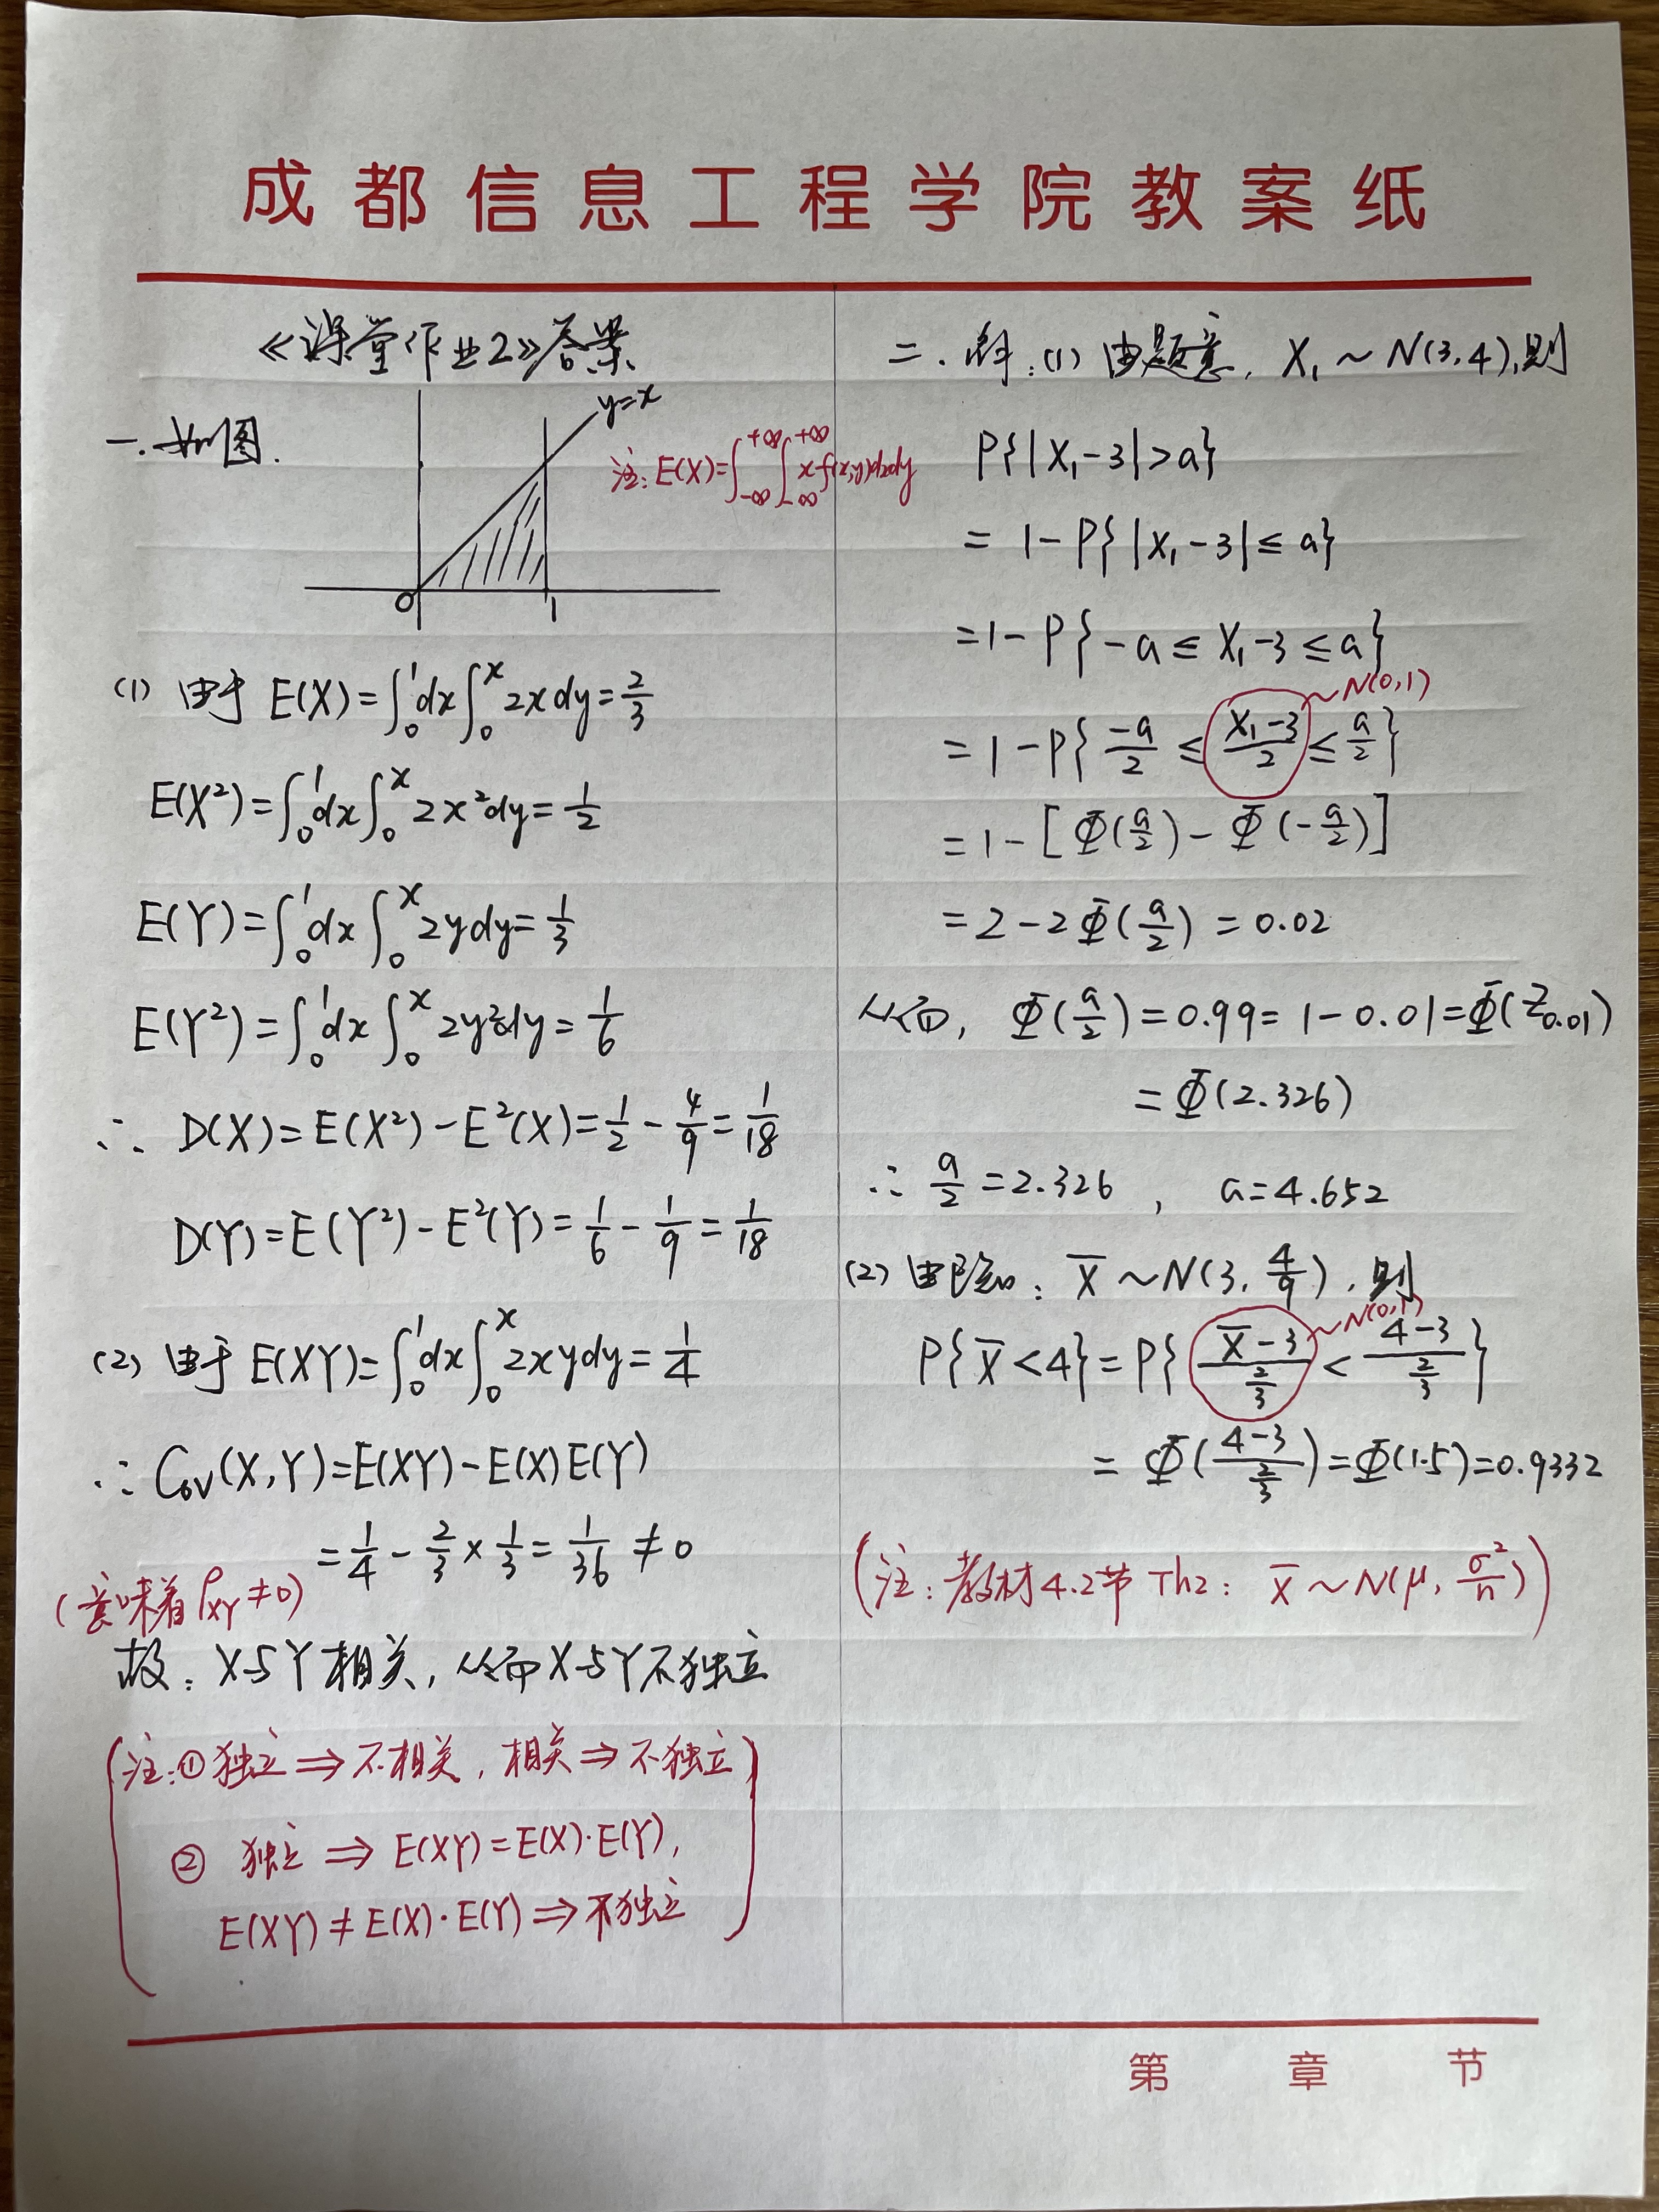 成都信息工程学院教案纸
《课堂作业2》答案
一.如图.
y=x
0
1
注: E(X)=∫_{-∞}^{+∞}∫_{-∞}^{+∞} x f(x,y)dxdy
(1) 由于 E(X)=∫_0^1 dx∫_0^x 2xdy=2/3
E(X²)=∫_0^1 dx∫_0^x 2x²dy=1/2
E(Y)=∫_0^1 dx∫_0^x 2ydy=1/3
E(Y²)=∫_0^1 dx∫_0^x 2y²dy=1/6
∴ D(X)=E(X²)-E²(X)=1/2-4/9=1/18
D(Y)=E(Y²)-E²(Y)=1/6-1/9=1/18
(2) 由于 E(XY)=∫_0^1 dx∫_0^x 2xydy=1/4
∴ Cov(X,Y)=E(XY)-E(X)E(Y)
=1/4-2/3×1/3=1/36≠0
(意味着ρ_XY≠0)
故: X与Y相关, 从而X与Y不独立
(注:①独立⇒不相关, 相关⇒不独立
② 独立⇒E(XY)=E(X)·E(Y),
E(XY)≠E(X)·E(Y)⇒不独立)
二.解:(1) 由题意, X₁~N(3,4),则
P{|X₁-3|>a}
=1-P{|X₁-3|≤a}
=1-P{-a≤X₁-3≤a}
~N(0,1)
=1-P{-a/2≤(X₁-3)/2≤a/2}
=1-[Φ(a/2)-Φ(-a/2)]
=2-2Φ(a/2)=0.02
从而, Φ(a/2)=0.99=1-0.01=Φ(Z_0.01)
=Φ(2.326)
∴ a/2=2.326, a=4.652
(2) 由已知: X̄~N(3,4/9),则
~N(0,1)
P{X̄<4}=P{(X̄-3)/(2/3)<(4-3)/(2/3)}
=Φ((4-3)/(2/3))=Φ(1.5)=0.9332
(注:教材4.2节Th2: X̄~N(μ,σ²/n))
第 章 节